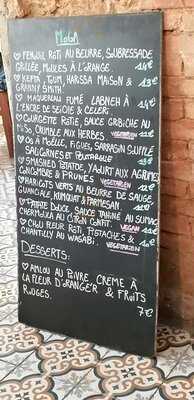 MOGA
♡ FENOUIL ROTI AU BEURRE, SOUBRESSADE
GRILLÉE, MOULES À L'ORANGE. 14€
♡ KEFTA, THON, HARISSA MAISON &
GRANNY SMITH 13€
♡ MAQUEREAU FUMÉ LABNEH À
L'ENCRE DE SEICHE & CELERI 14€
♡ COURGETTE ROTIE, SAUCE GRIBICHE AU
MISO, CRUMBLE AUX HERBES VEGETARIEN 12€
♡ OS À MOELLE, FIGUES, SARRASIN SOUFFLÉ
& POUTARGUE 13€
♡ SMASHED POTATOE, YAOURT AUX AGRUMES
CONCOMBRE & PRUNES VEGETARIEN
♡ HARICOTS VERTS AU BEURRE DE SAUGE,
GUANCIALE, KUMQUAT & PARMESAN
♡ PATATE DOUCE, SAUCE TAHINE AU SUMAC,
CHERMOULA AU CITRON CONFIT. VEGAN 11€
♡ CHOU FLEUR ROTI, PISTACHES &
CHANTILLY AU WASABI. VEGETARIEN 12€
DESSERTS:
♡ AMLOU AU POIVRE, CREME À
LA FLEUR D'ORANGER & FRUITS
ROUGES. 7€